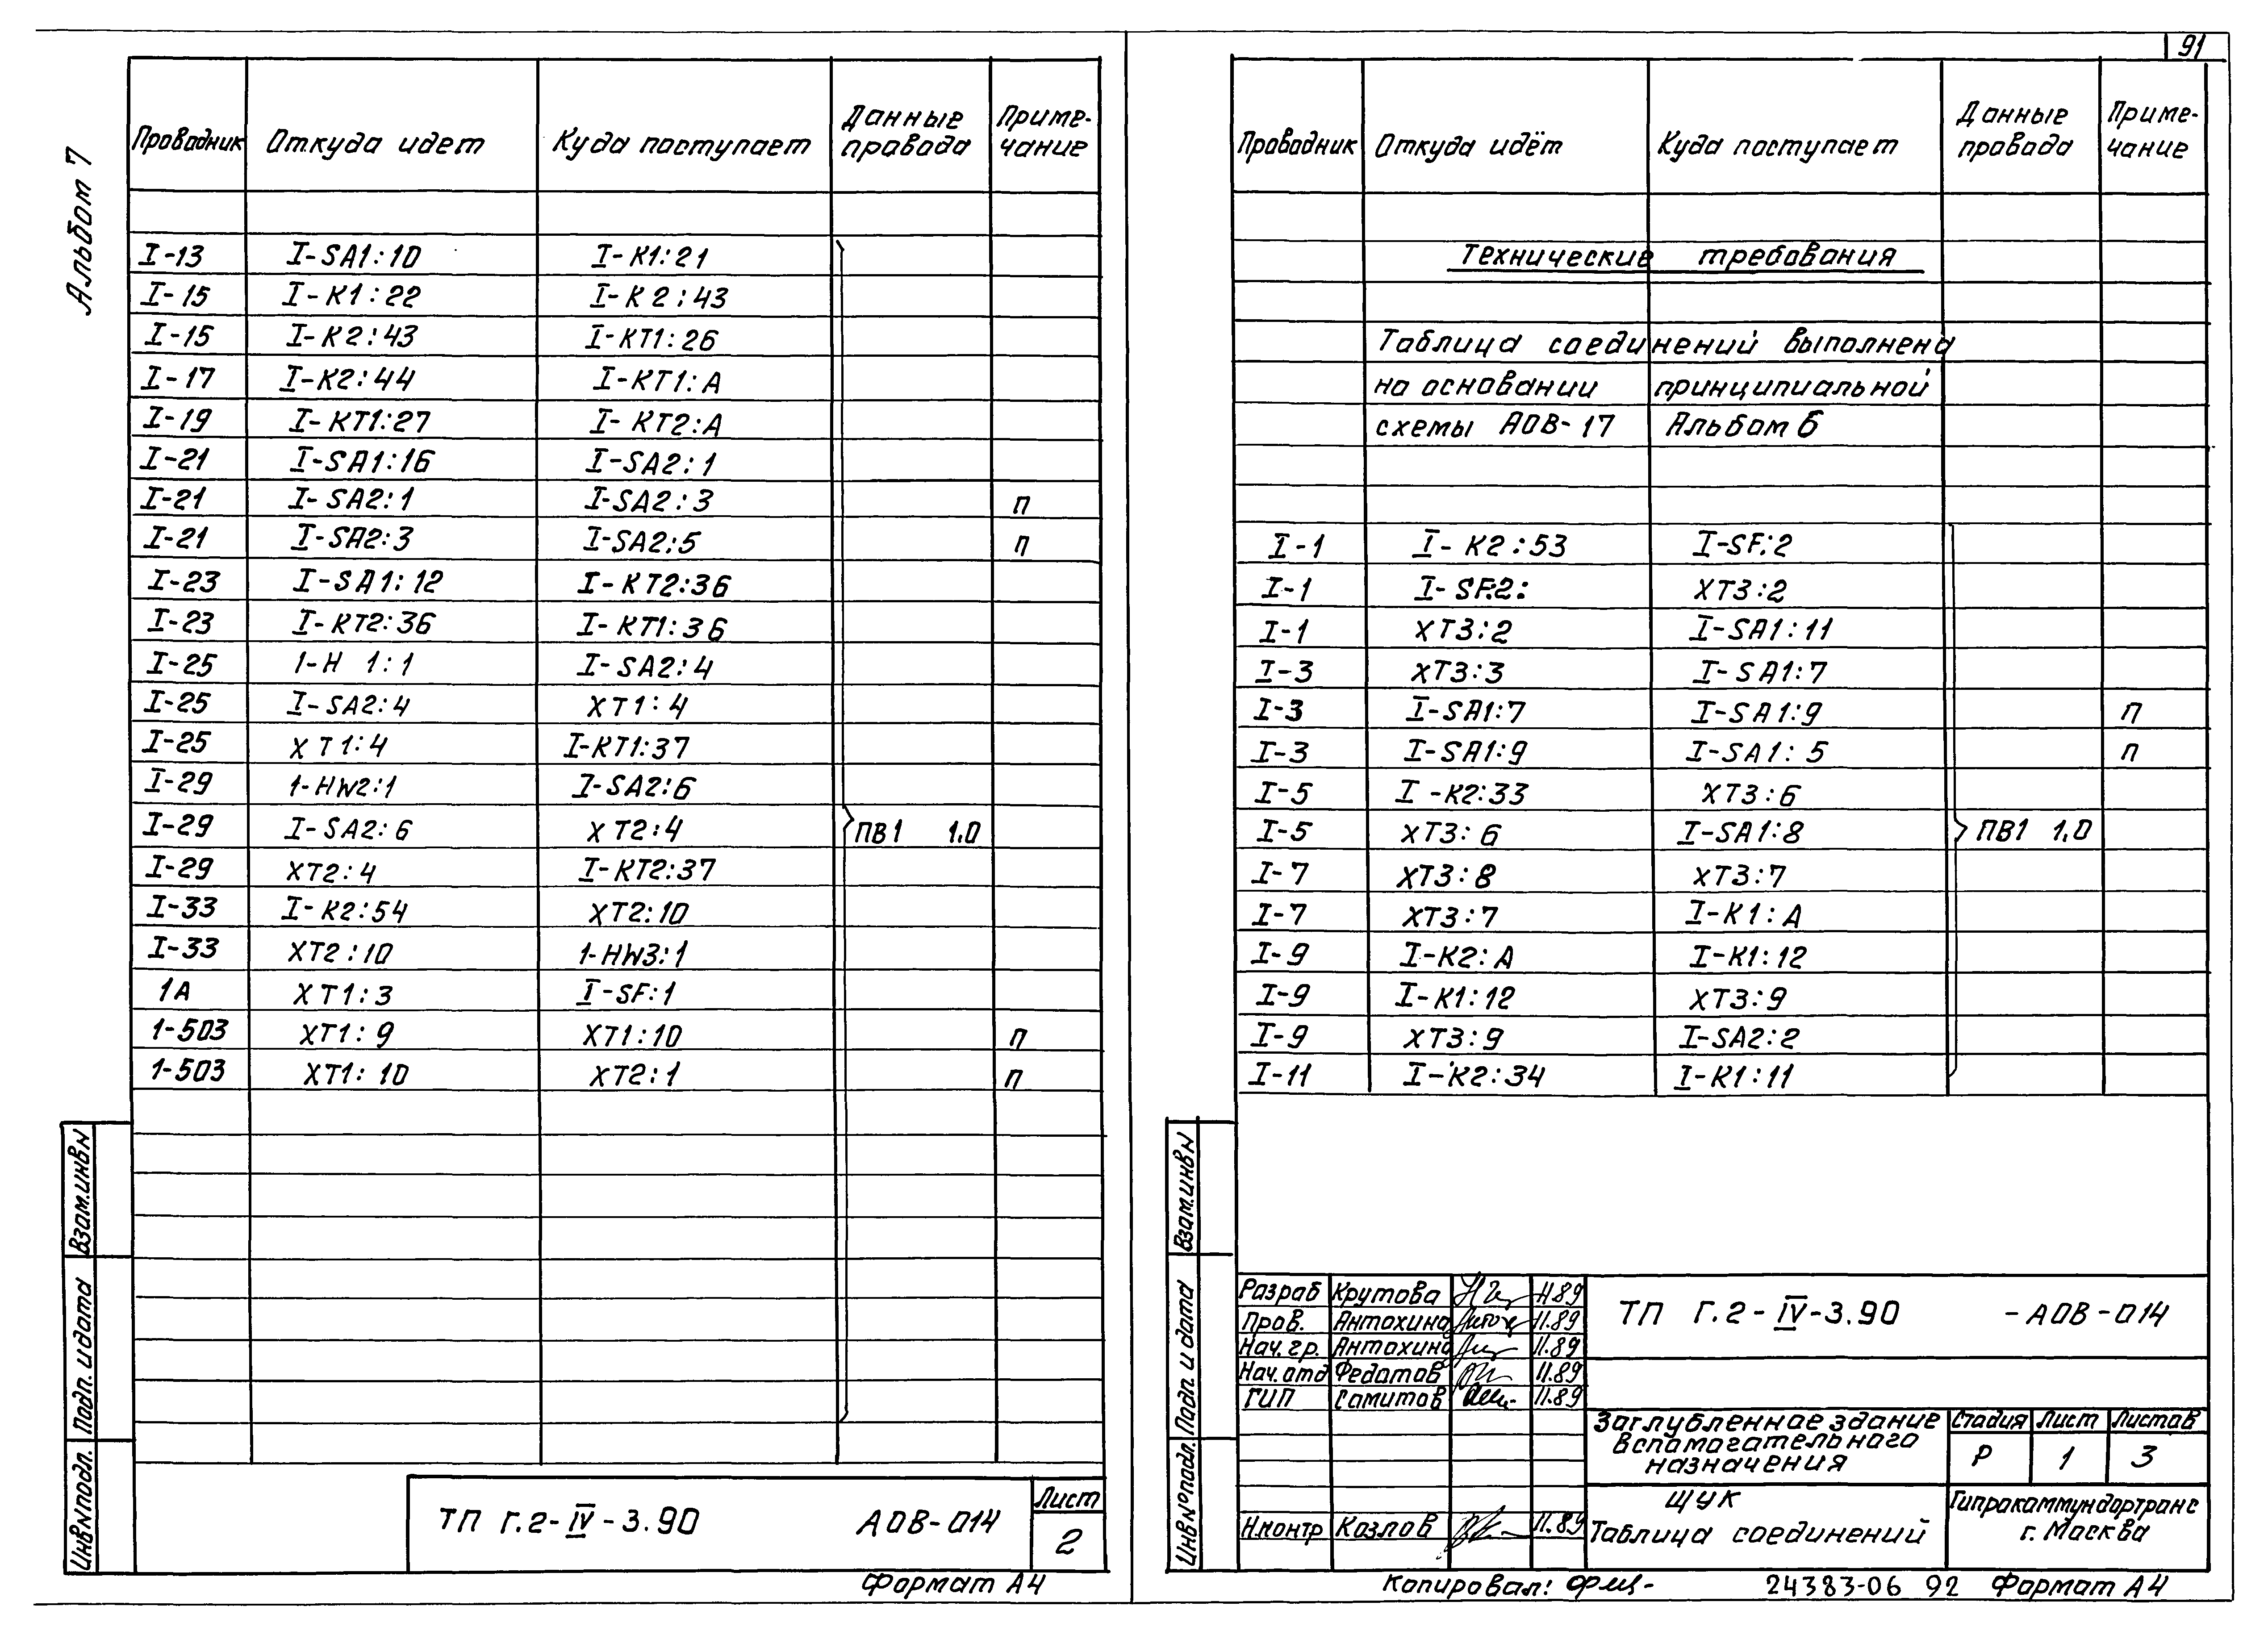 91
Альбом 7
Проводник Откуда идет Куда поступает Данные провода Приме-чание
I-13 I-SA1:10 I-K1:21
I-15 I-K1:22 I-K2:43
I-15 I-K2:43 I-KT1:26
I-17 I-K2:44 I-KT1:A
I-19 I-KT1:27 I-KT2:A
I-21 I-SA1:16 I-SA2:1
I-21 I-SA2:1 I-SA2:3 п
I-21 I-SA2:3 I-SA2:5 п
I-23 I-SA1:12 I-KT2:36
I-23 I-KT2:36 I-KT1:36
I-25 1-H 1:1 I-SA2:4
I-25 I-SA2:4 XT1:4
I-25 XT1:4 I-KT1:37
I-29 1-HW2:1 I-SA2:6
I-29 I-SA2:6 XT2:4 ПВ1 1.0
I-29 XT2:4 I-KT2:37
I-33 I-K2:54 XT2:10
I-33 XT2:10 1-HW3:1
1A XT1:3 I-SF:1
1-503 XT1:9 XT1:10 п
1-503 XT1:10 XT2:1 п
Взам.инв№
Подп. и дата
Инв№подл.
ТП Г.2-IV-3.90 АОВ-014
Лист
2
Формат А4
Проводник Откуда идёт Куда поступает Данные провода Приме-чание
Технические требования
Таблица соединений выполнена
на основании принципиальной
схемы АОВ-17 Альбом 6
I-1 I-K2:53 I-SF:2
I-1 I-SF:2: XT3:2
I-1 XT3:2 I-SA1:11
I-3 XT3:3 I-SA1:7
I-3 I-SA1:7 I-SA1:9 п
I-3 I-SA1:9 I-SA1:5 п
I-5 I-K2:33 XT3:6
I-5 XT3:6 I-SA1:8 ПВ1 1.0
I-7 XT3:8 XT3:7
I-7 XT3:7 I-K1:A
I-9 I-K2:A I-K1:12
I-9 I-K1:12 XT3:9
I-9 XT3:9 I-SA2:2
I-11 I-K2:34 I-K1:11
Взам.инв№
Подп. и дата
Инв№подл.
Разраб Крутова 11.89
Пров. Антохина 11.89
Нач.гр. Антохина 11.89
Нач.отд Федотов 11.89
ГИП Самитов 11.89
Н.контр Козлов 11.89
ТП Г.2-IV-3.90 -АОВ-014
Заглубленное здание
вспомогательного
назначения
Стадия Лист Листов
Р 1 3
ЩУК
Таблица соединений
Гипрокоммундортранс
г. Москва
Копировал: 24383-06 92 Формат А4